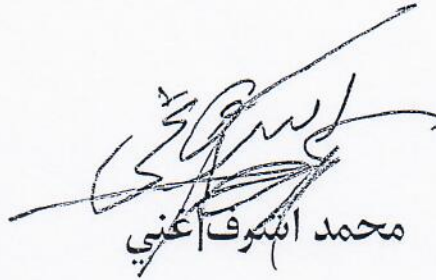 محمد اشرف غني